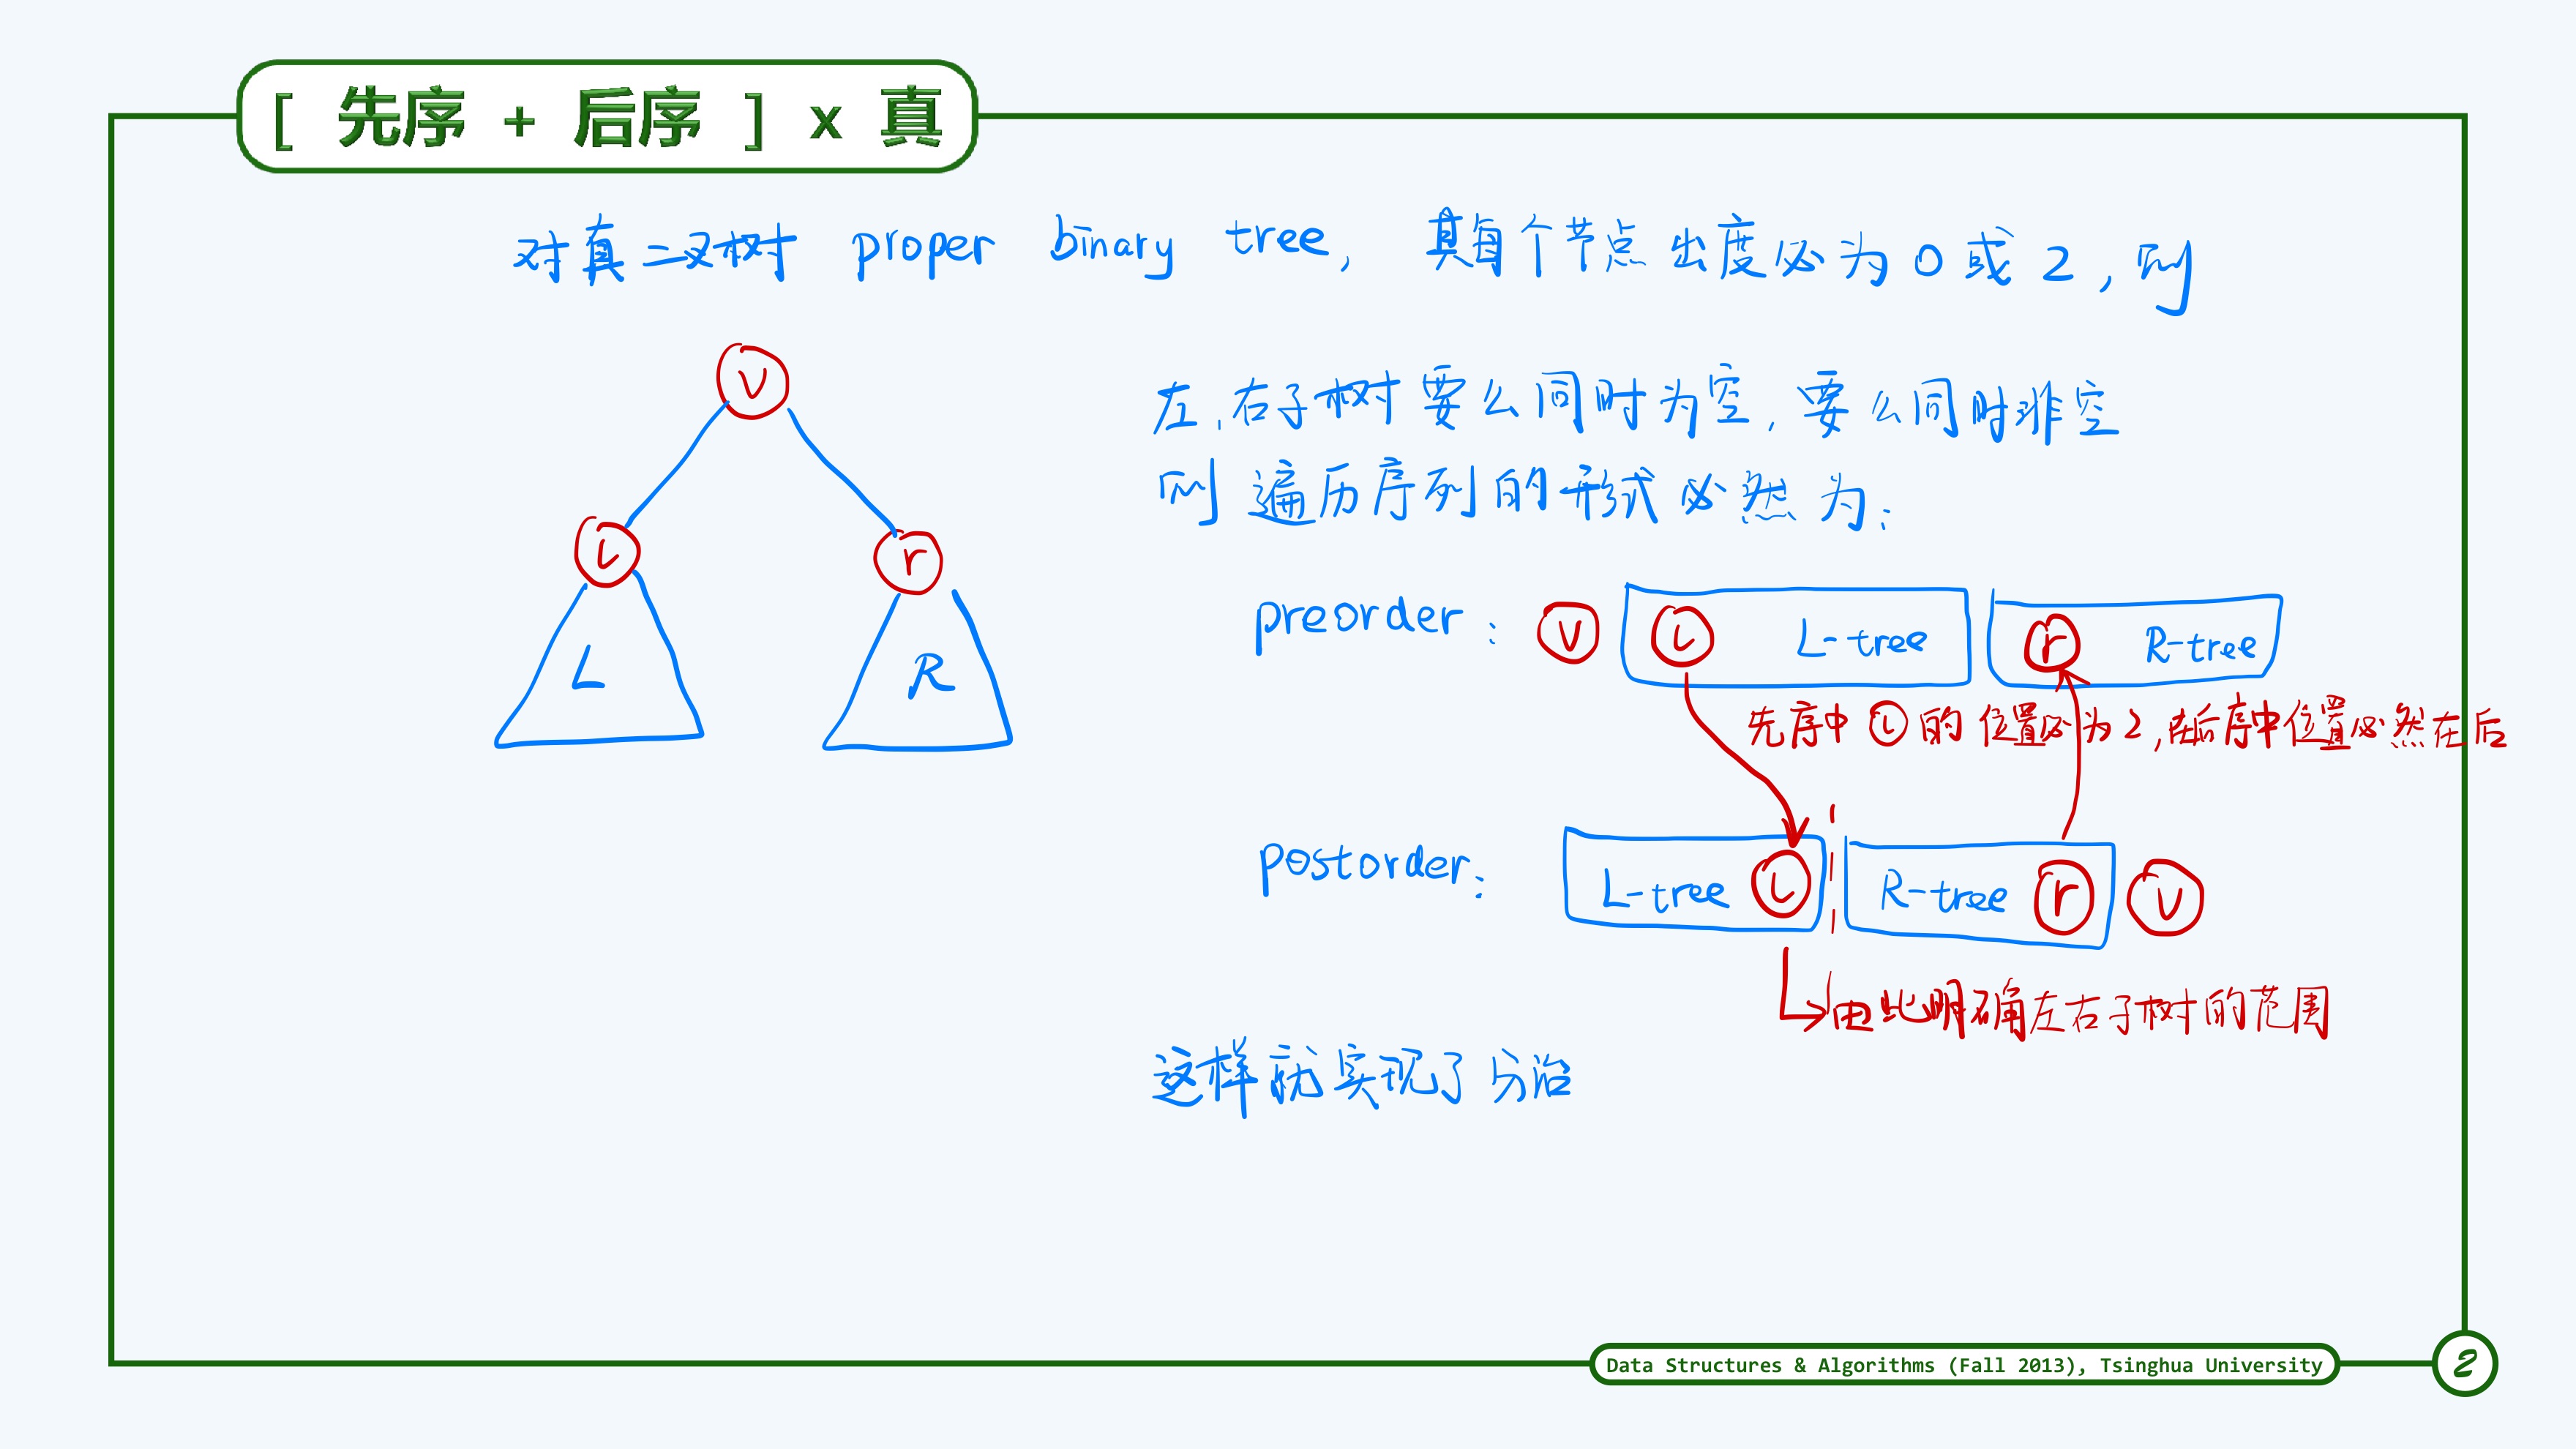 [ 先序 + 后序 ] x 真
对真二叉树 proper binary tree, 其每个节点出度必为0或2,则
V
左,右子树要么同时为空,要么同时非空
则遍历序列的形式必然为:
L
r
L
R
preorder: V L L-tree r R-tree
先序中 L 的位置必为2,在后序中位置必然在后
postorder: L-tree L R-tree r V
由此明确左右子树的范围
这样就实现了分治
Data Structures & Algorithms (Fall 2013), Tsinghua University
2